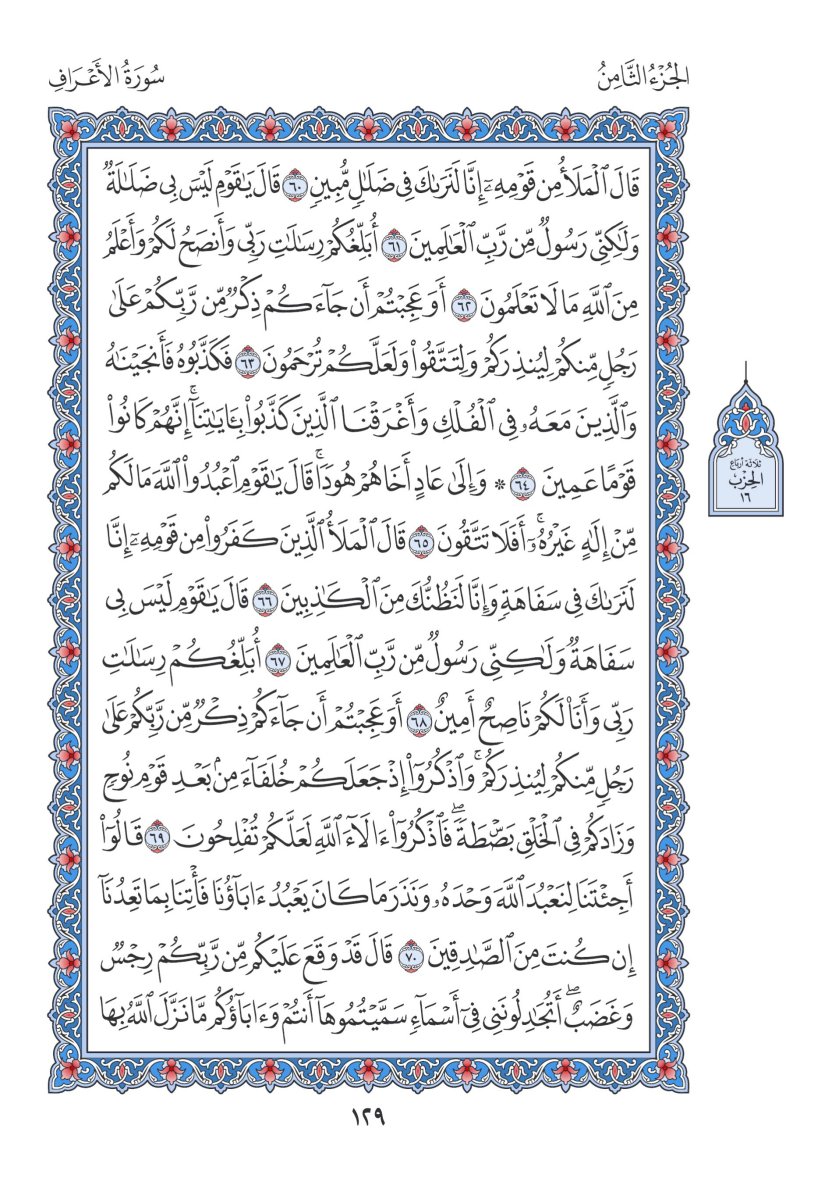 الجُزْءُ الثَّامِنُ
سُورَةُ الأَعْرَافِ
قَالَ ٱلْمَلَأُ مِن قَوْمِهِۦٓ إِنَّا لَنَرَىٰكَ فِى ضَلَٰلٍ مُّبِينٍ ٦٠ قَالَ يَٰقَوْمِ لَيْسَ بِى ضَلَٰلَةٌ
وَلَٰكِنِّى رَسُولٌ مِّن رَّبِّ ٱلْعَٰلَمِينَ ٦١ أُبَلِّغُكُمْ رِسَٰلَٰتِ رَبِّى وَأَنصَحُ لَكُمْ وَأَعْلَمُ
مِنَ ٱللَّهِ مَا لَا تَعْلَمُونَ ٦٢ أَوَعَجِبْتُمْ أَن جَآءَكُمْ ذِكْرٌ مِّن رَّبِّكُمْ عَلَىٰ
رَجُلٍ مِّنكُمْ لِيُنذِرَكُمْ وَلِتَتَّقُوا۟ وَلَعَلَّكُمْ تُرْحَمُونَ ٦٣ فَكَذَّبُوهُ فَأَنجَيْنَٰهُ
وَٱلَّذِينَ مَعَهُۥ فِى ٱلْفُلْكِ وَأَغْرَقْنَا ٱلَّذِينَ كَذَّبُوا۟ بِـَٔايَٰتِنَآ ۚ إِنَّهُمْ كَانُوا۟
قَوْمًا عَمِينَ ٦٤ ۞ وَإِلَىٰ عَادٍ أَخَاهُمْ هُودًا ۗ قَالَ يَٰقَوْمِ ٱعْبُدُوا۟ ٱللَّهَ مَا لَكُم
مِّنْ إِلَٰهٍ غَيْرُهُۥٓ ۚ أَفَلَا تَتَّقُونَ ٦٥ قَالَ ٱلْمَلَأُ ٱلَّذِينَ كَفَرُوا۟ مِن قَوْمِهِۦٓ إِنَّا
لَنَرَىٰكَ فِى سَفَاهَةٍ وَإِنَّا لَنَظُنُّكَ مِنَ ٱلْكَٰذِبِينَ ٦٦ قَالَ يَٰقَوْمِ لَيْسَ بِى
سَفَاهَةٌ وَلَٰكِنِّى رَسُولٌ مِّن رَّبِّ ٱلْعَٰلَمِينَ ٦٧ أُبَلِّغُكُمْ رِسَٰلَٰتِ
رَبِّى وَأَنَا۠ لَكُمْ نَاصِحٌ أَمِينٌ ٦٨ أَوَعَجِبْتُمْ أَن جَآءَكُمْ ذِكْرٌ مِّن رَّبِّكُمْ عَلَىٰ
رَجُلٍ مِّنكُمْ لِيُنذِرَكُمْ ۚ وَٱذْكُرُوٓا۟ إِذْ جَعَلَكُمْ خُلَفَآءَ مِنۢ بَعْدِ قَوْمِ نُوحٍ
وَزَادَكُمْ فِى ٱلْخَلْقِ بَصْۜطَةً ۖ فَٱذْكُرُوٓا۟ ءَالَآءَ ٱللَّهِ لَعَلَّكُمْ تُفْلِحُونَ ٦٩ قَالُوٓا۟
أَجِئْتَنَا لِنَعْبُدَ ٱللَّهَ وَحْدَهُۥ وَنَذَرَ مَا كَانَ يَعْبُدُ ءَابَآؤُنَا فَأْتِنَا بِمَا تَعِدُنَآ
إِن كُنتَ مِنَ ٱلصَّٰدِقِينَ ٧٠ قَالَ قَدْ وَقَعَ عَلَيْكُم مِّن رَّبِّكُمْ رِجْسٌ
وَغَضَبٌ ۖ أَتُجَٰدِلُونَنِى فِىٓ أَسْمَآءٍ سَمَّيْتُمُوهَآ أَنتُمْ وَءَابَآؤُكُم مَّا نَزَّلَ ٱللَّهُ بِهَا
ثلاثة أرباع
الحزب
١٦
١٢٩